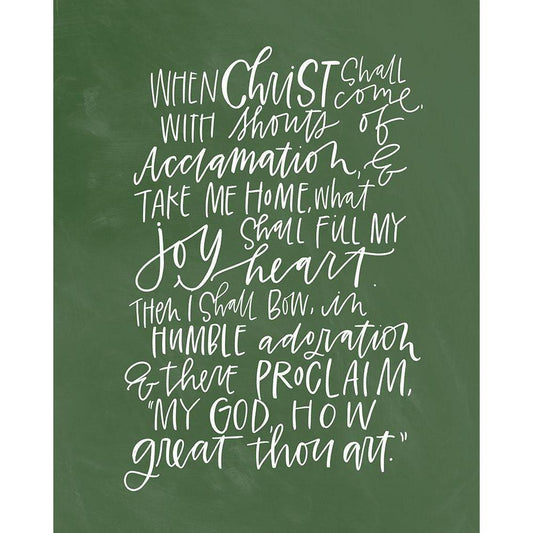 WHEN ChriST Shall come,
WITH shouts of
Acclamation, &
TAKE ME HOME, what
joy Shall FILL MY
heart.
Then I Shall Bow, in
HUMBLE adoration
& there PROCLAIM,
"MY GOD, HOW
great thou art."